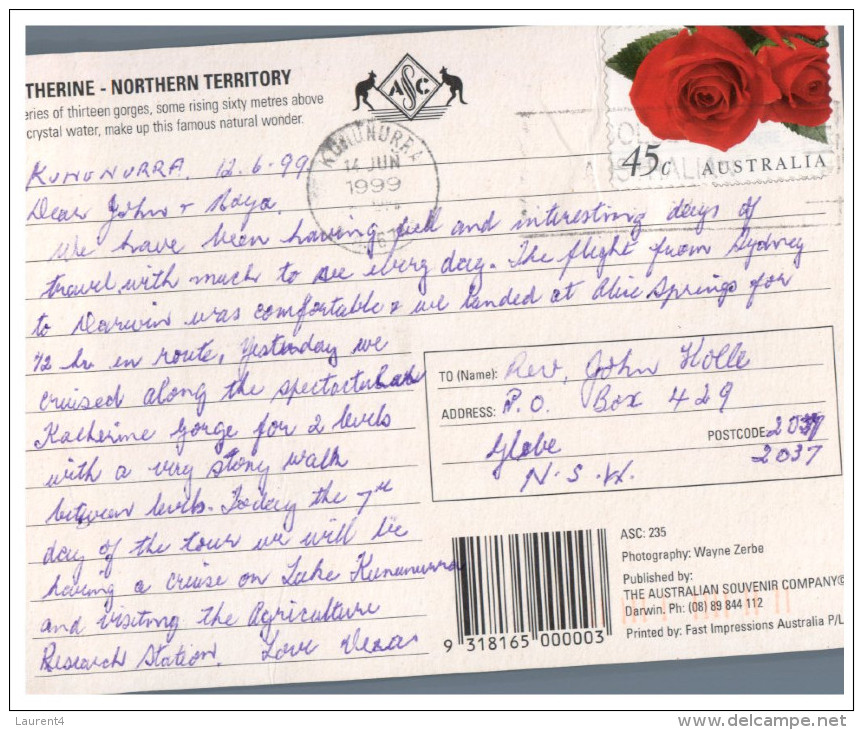 THERINE - NORTHERN TERRITORY
eries of thirteen gorges, some rising sixty metres above
crystal water, make up this famous natural wonder.
ASC
KUNUNURRA
14 JUN
1999
45c AUSTRALIA
KUNUNURRA, 12.6.99
Dear John & Naya.
We have been having full and interesting days of
travel, with much to see every day. The flight from Sydney
to Darwin was comfortable & we landed at Alice Springs for
1/2 hr en route, Yesterday we
cruised along the
Katherine Gorge for 2 levels
with a very stony walk
between levels. Today the 7th
day of the tour we will be
having a cruise on Lake Kununurra
and visiting the Agriculture
Research Station. Love Vera
TO (Name): Rev, John Kolle
ADDRESS: P.O. Box 429
Glebe POSTCODE: 2037
N.S.W. 2037
ASC: 235
Photography: Wayne Zerbe
Published by:
THE AUSTRALIAN SOUVENIR COMPANY©
Darwin. Ph: (08) 89 844 112
Printed by: Fast Impressions Australia P/L
9 318165 000003
Laurent4
delcampe.net